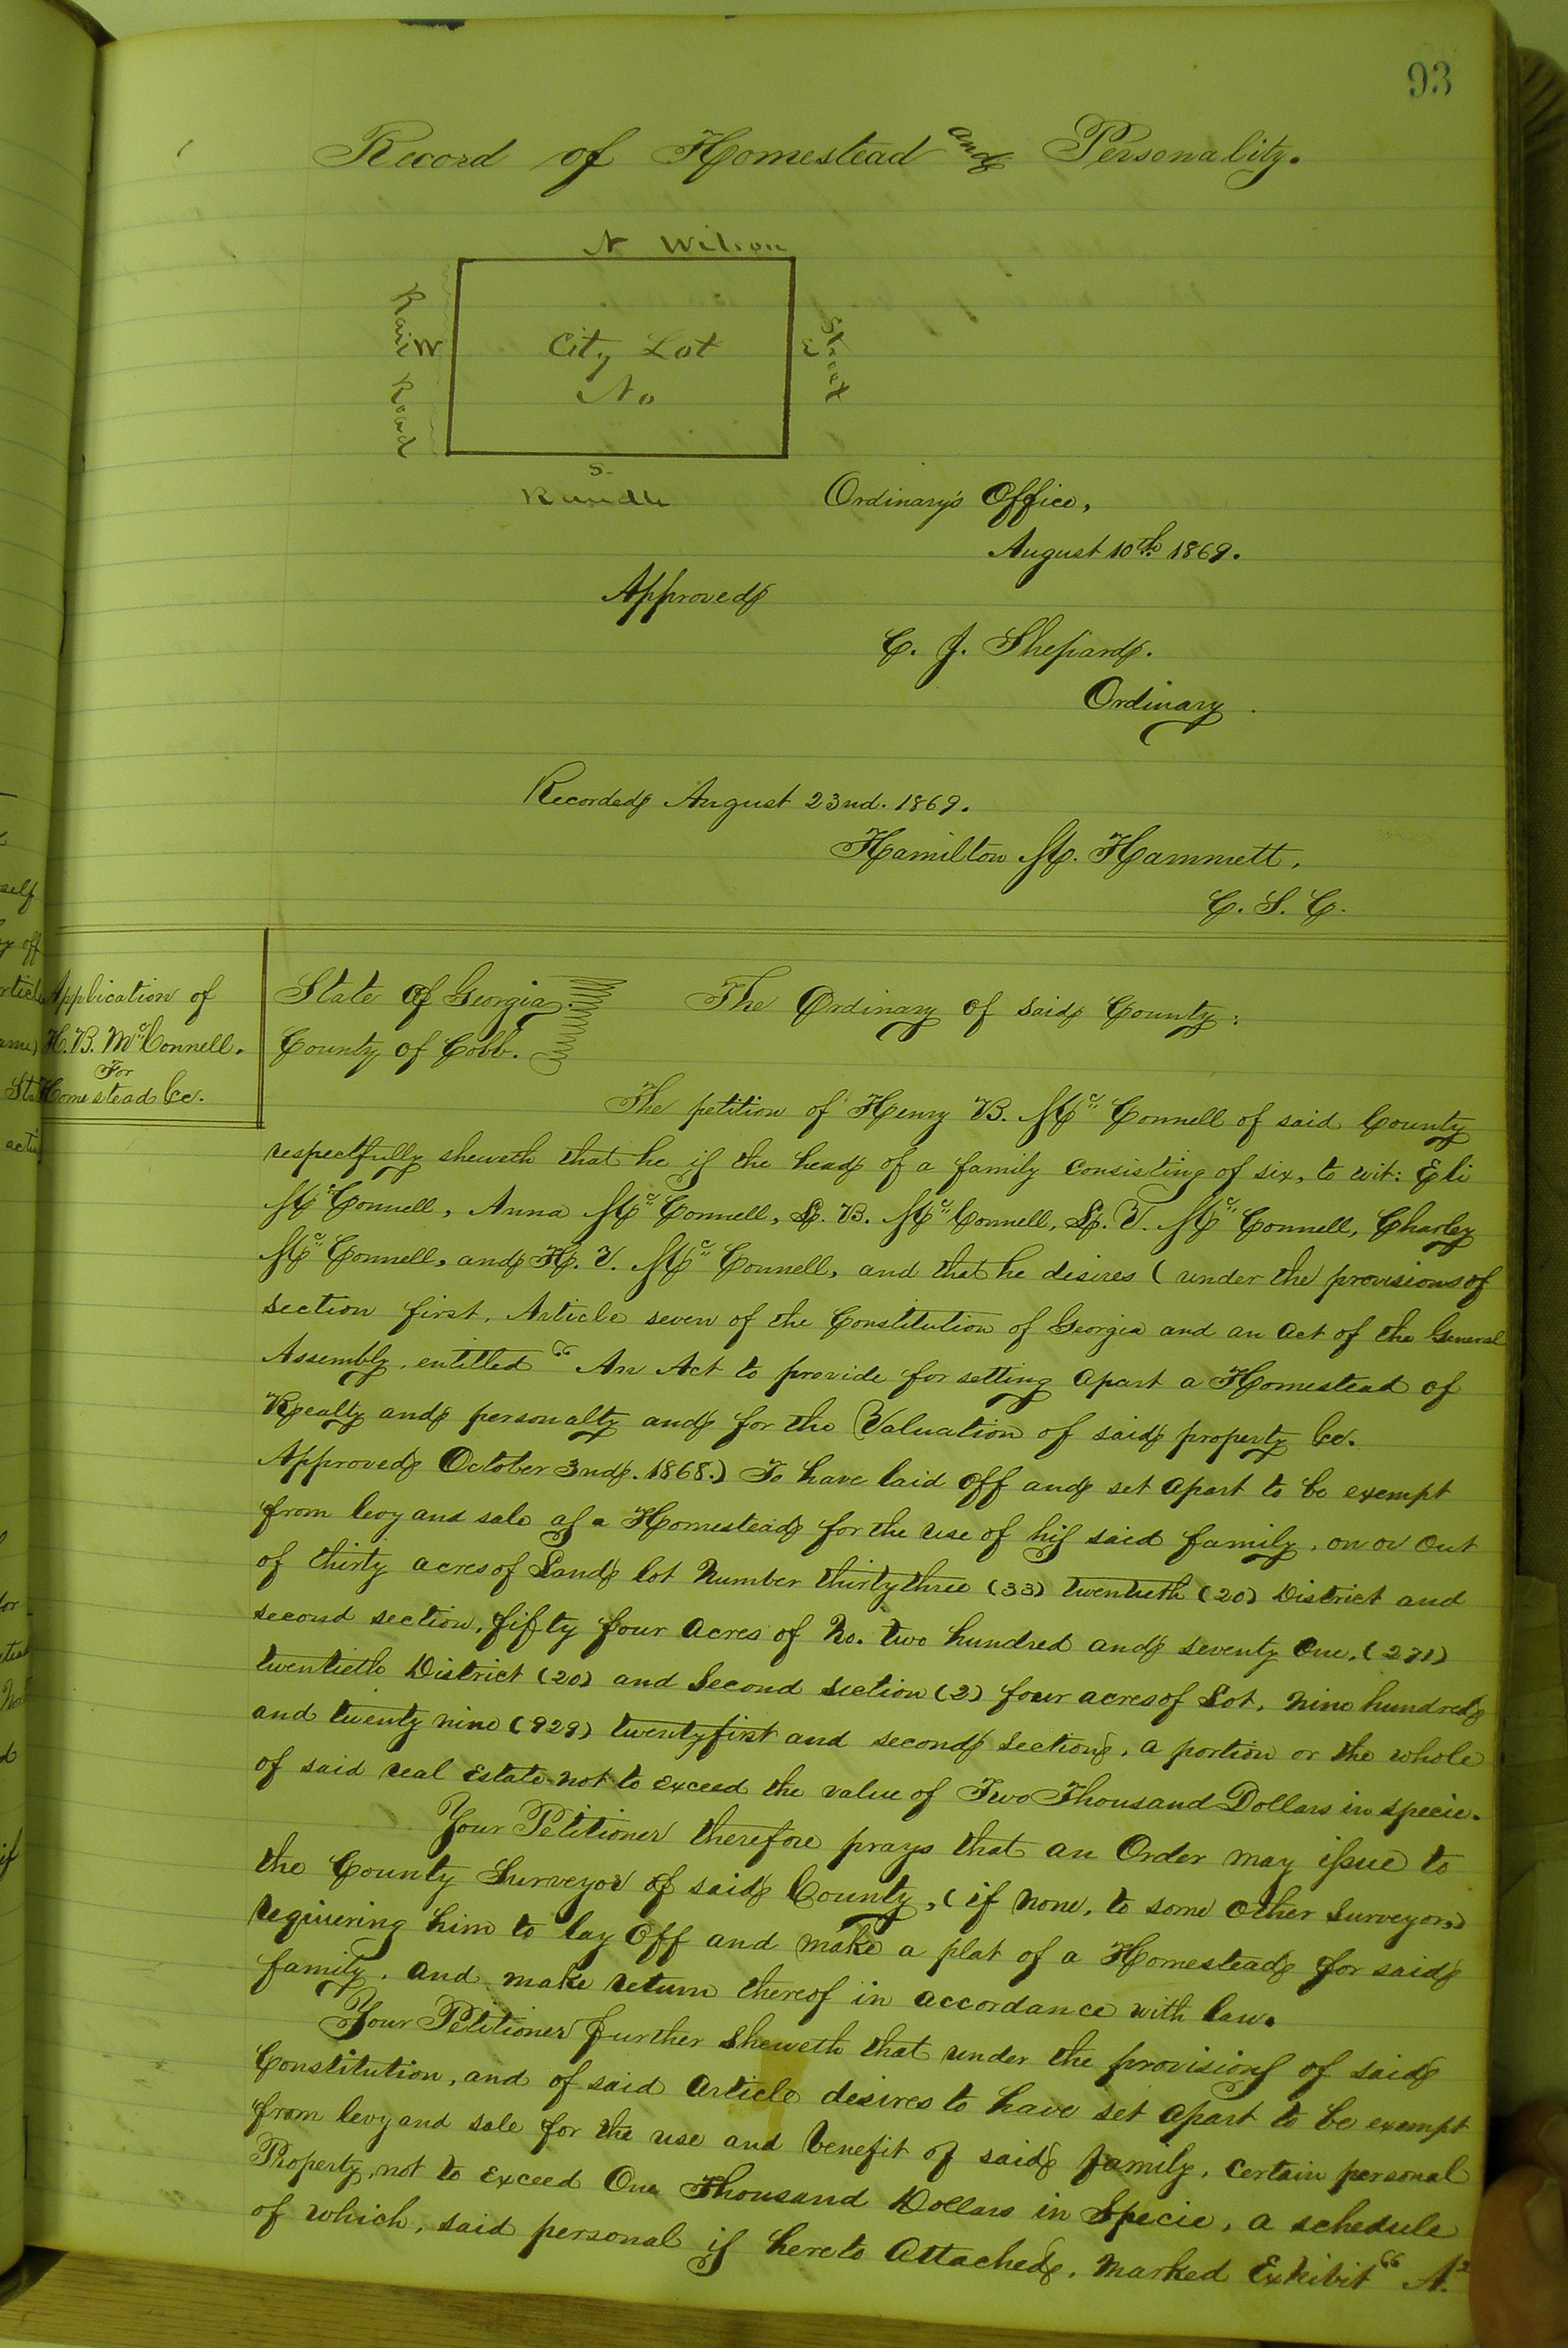 93
Record of Homestead and Personality.
N Wilson
Rail Road
W
City Lot
No
E
Street
S.
Rundle
Ordinary's Office,
August 10th 1869.
Approved
C. J. Shepard.
Ordinary.
Recorded August 23nd. 1869.
Hamilton M. Hammett,
C. S. C.
Application of
H. B. McConnell.
For
Homestead &c.
State of Georgia
County of Cobb.
The Ordinary of said County:
The petition of Henry B. McConnell of said County
respectfully sheweth that he is the head of a family consisting of six, to wit: Eli
McConnell, Anna McConnell, L. B. McConnell, L. V. McConnell, Charley
McConnell, and H. V. McConnell, and that he desires (under the provisions of
section first, Article seven of the Constitution of Georgia and an act of the General
Assembly, entitled "An Act to provide for setting apart a Homestead of
Realty and personalty and for the Valuation of said property &c.
Approved October 3nd. 1868.) To have laid off and set apart to be exempt
from levy and sale as a Homestead for the use of his said family, on or out
of thirty acres of Land lot Number thirty three (33) twentieth (20) District and
second section, fifty four acres of No. two hundred and seventy one, (271)
twentieth District (20) and Second Section (2) four acres of Lot, nine hundred
and twenty nine (929) twenty first and second section, a portion or the whole
of said real Estate not to exceed the value of Two Thousand Dollars in specie.
Your Petitioner therefore prays that an Order may issue to
the County Surveyor of said County, (if none, to some other Surveyor,)
requiering him to lay off and make a plat of a Homestead for said
family, and make return thereof in accordance with law.
Your Petitioner further sheweth that under the provisions of said
Constitution, and of said article desires to have set apart to be exempt
from levy and sale for the use and benefit of said family, certain personal
Property, not to exceed One Thousand Dollars in Specie, a schedule
of which, said personal is hereto attached, marked Exhibit "A."